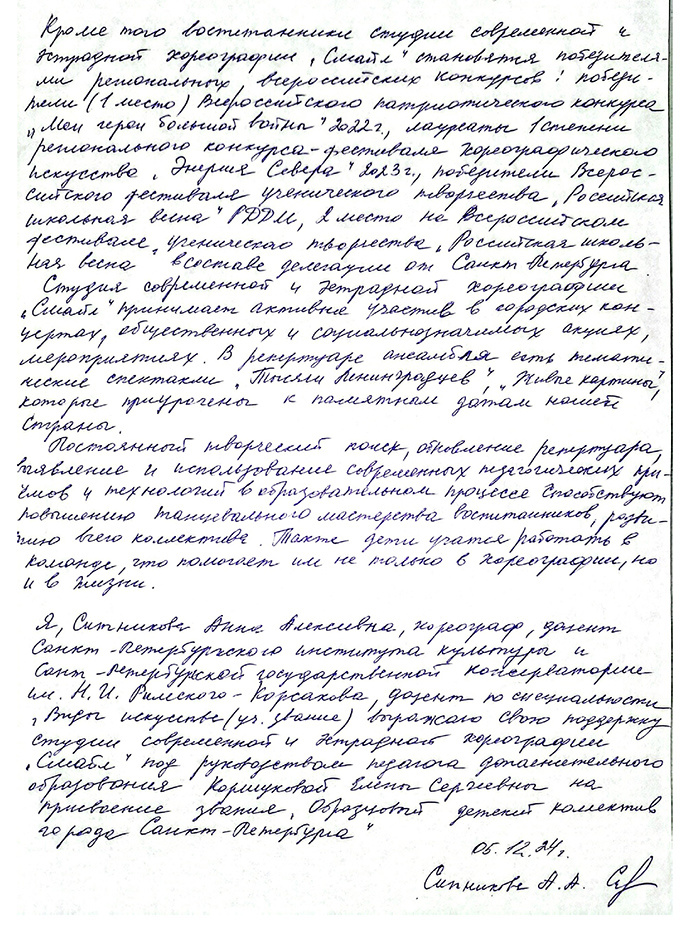 Кроме того воспитанники студии современной и
эстрадной хореографии „Смайл" становятся победителя-
ми региональных, всероссийских конкурсов: победи-
тели (1 место) Всероссийского патриотического конкурса
„Мои герои большой войны" 2022г., лауреаты 1 степени
регионального конкурса-фестиваля хореографического
искусства „Энергия Севера" 2023г., победители Всерос-
сийского фестиваля ученического творчества „Российская
школьная весна" РДДМ, 2 место на Всероссийском
фестивале ученическао творчества „Российская школь-
ная весна в составе делегации от Санкт-Петербурга.
Студия современной и эстрадной хореографии
„Смайл" принимает активное участие в городских кон-
цертах, общественных и социальнозначимых акциях,
мероприятиях. В репертуаре ансамбля есть темати-
ческие спектакли „Тысячи Ленинградцев", „Живые картины",
которые приурочены к памятным датам нашей
страны.
Постоянный творческий поиск, обновление репертуара,
выявление и использование современных педагогических при-
ёмов и технологий в образовательном процессе способствуют
повышению танцевального мастерства воспитанников, разви-
тию всего коллектива. Также дети учатся работать в
команде, что помогает им не только в хореографии, но
и в жизни.
Я, Ситникова Анна Алексеевна, хореограф, доцент
Санкт-Петербургского института культуры и
Санкт-Петербургской государственной консерватории
им. Н.И. Римского-Корсакова, доцент по специальности
„Виды искусства (уч. звание) выражаю свою поддержку
студии современной и эстрадной хореографии
„Смайл" под руководством педагога дополнительного
образования Коршуковой Елены Сергеевны на
присвоение звания „Образцовый детский коллектив
города Санкт-Петербурга"
05.12.24г.
Ситникова А.А.